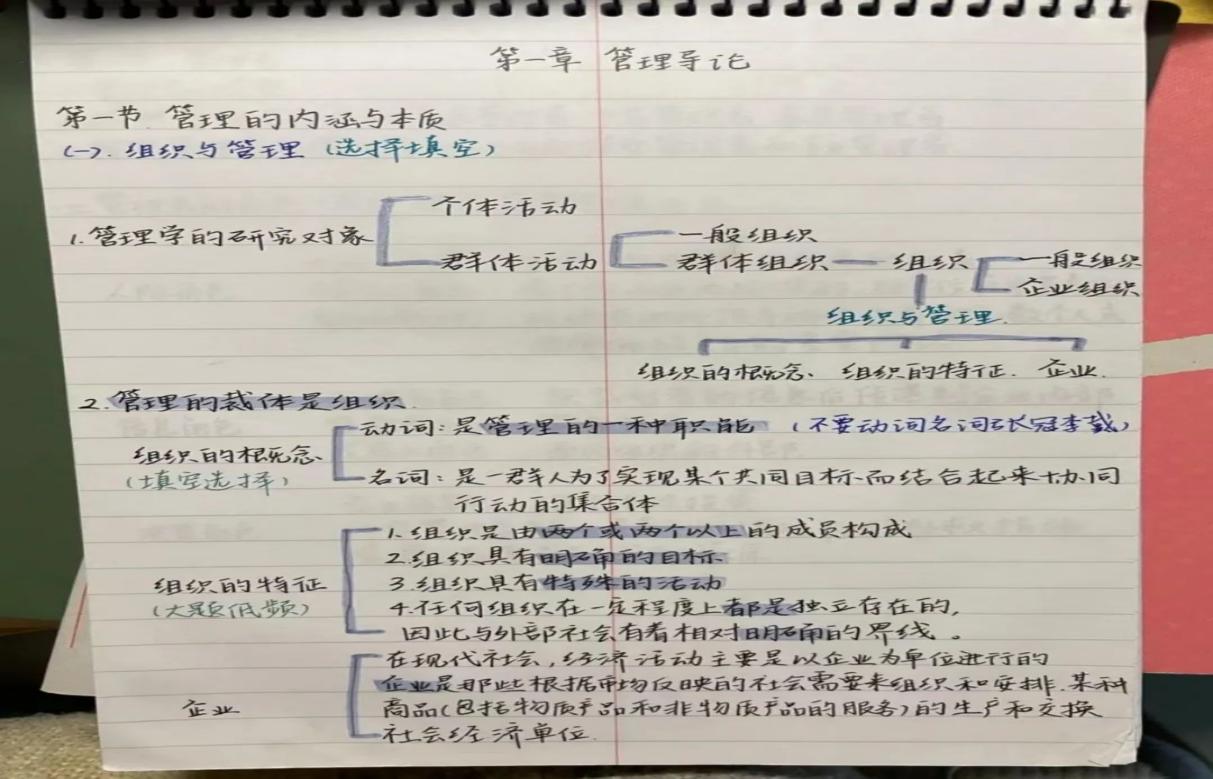 第一章 管理导论
第一节 管理的内涵与本质
(一). 组织与管理 (选择填空)
1. 管理学的研究对象
个体活动
群体活动
一般组织
群体组织 — 组织
一般组织
企业组织
组织与管理.
组织的概念、组织的特征. 企业.
2. 管理的载体是组织.
组织的概念、
(填空选择)
动词: 是管理的一种职能 (不要动词名词张冠李戴)
名词: 是一群人为了实现某个共同目标而结合起来协同
行动的集合体
组织的特征
(大题低频)
1. 组织是由两个或两个以上的成员构成
2. 组织具有明确的目标
3. 组织具有特殊的活动
4. 任何组织在一定程度上都是独立存在的,
因此与外部社会有着相对明确的界线。
企业
在现代社会, 经济活动主要是以企业为单位进行的
企业是那些根据市场反映的社会需要来组织和安排. 某种
商品(包括物质产品和非物质产品的服务)的生产和交换
社会经济单位.